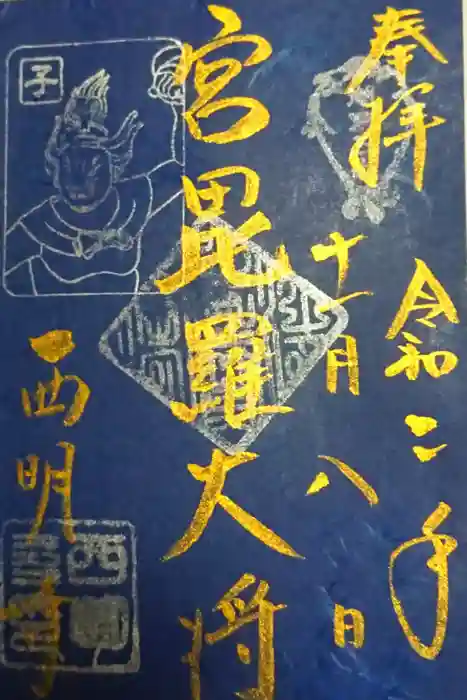 奉拝
令和二年
十一月八日
宮毘羅大将
子
西明寺